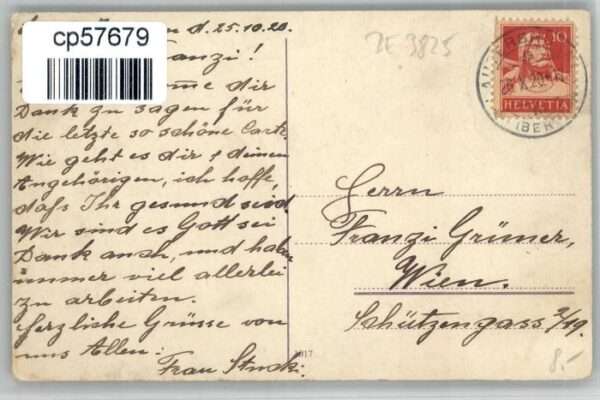 d. 25.10.20.
cp57679
dir
Dank zu sagen für
die letzte so schöne Carte.
Wie geht es dir & deinen
Angehörigen, ich hoffe,
dass Ihr gesund seid.
Wir sind es Gott sei
Dank auch, und haben
immer viel allerlei
zu arbeiten.
Herzliche Grüsse von
uns Allen:
Frau Stucki.
ZE 3825
10
HELVETIA
(BERN)
Herrn
Franzi Grüner,
Wien.
Schützengass 2/19.
8.-